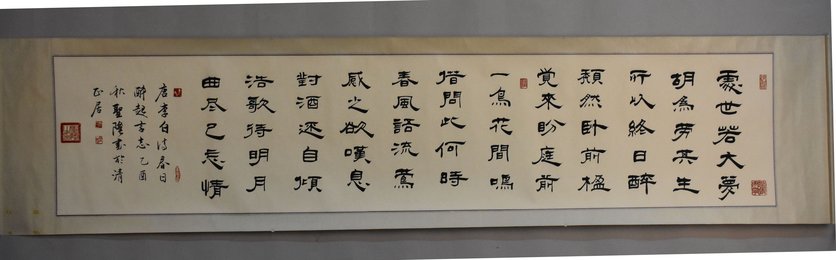 處世若大夢
胡為勞其生
所以終日醉
頹然卧前楹
覺來盼庭前
一鳥花間鳴
借問此何時
春風語流鶯
感之欲嘆息
對酒還自傾
浩歌待明月
曲尽已忘情
唐李白诗春日
醉起言志乙酉
秋聖隆書於清
居